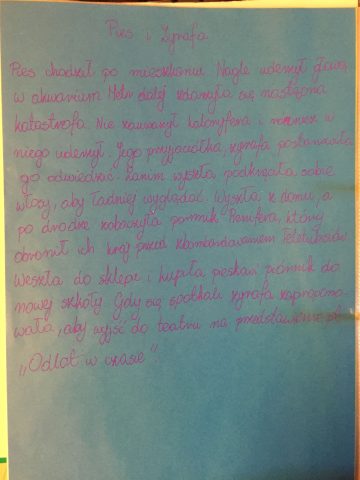 Pies i Żyrafa
Pies chodził po mieszkaniu. Nagle uderzył głową
w akwarium. Metr dalej zdarzyła się następna
katastrofa. Nie zauważył kaloryfera i również w
niego uderzył. Jego przyjaciółka, żyrafa postanowiła
go odwiedzić. Zanim wyszła podkręcała sobie
włosy, aby ładniej wyglądać. Wyszła z domu, a
po drodze zobaczyła pomnik który
obronił ich kraj przed zbombardowaniem Teletubisiów.
Weszła do sklepu i kupiła pieskowi piórnik do
nowej szkoły. Gdy się spotkali żyrafa zapropono-
wała, aby wyjść do teatru na przedstawienie
"Odlot w czasie"